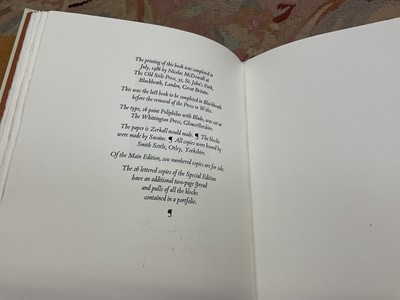 The printing of this book was completed in
July, 1986 by Nicolas McDowall at
The Old Stile Press, 32, St. John's Park,
Blackheath, London, Great Britain.
This was the last book to be completed in Blackheath
before the removal of the Press to Wales.
The type, 16 point Poliphilus with Blado, was set at
The Whittington Press, Gloucestershire.
The paper is Zerkall mould made. ¶ The blocks
were made by Swains. ¶ All copies were bound by
Smith Settle, Otley, Yorkshire.
Of the Main Edition, 200 numbered copies are for sale.
The 26 lettered copies of the Special Edition
have an additional two-page spread
and pulls of all the blocks
contained in a portfolio.
¶